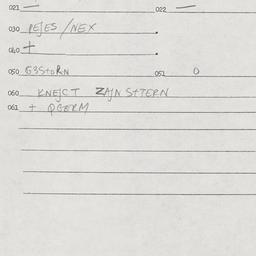 021 — 022 —
030 PEJES / NEX
040 +
050 G3StoRN 051 0
060 KNEJCT ZAJN STTERN
061 + QGERM